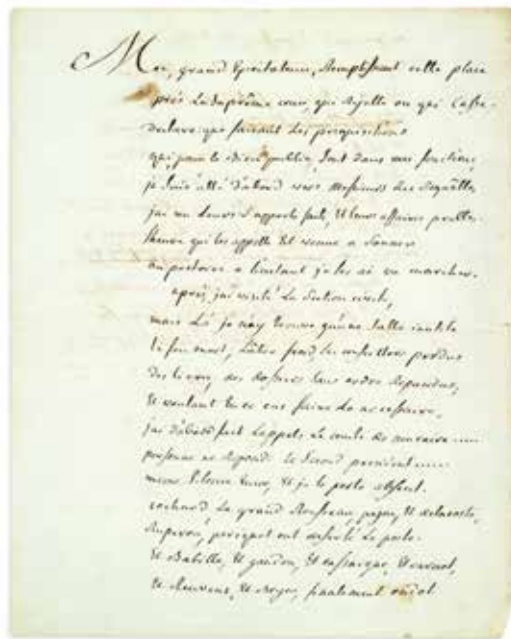 Moi, grand Spectateur, Remplissant cette place
près La Suprême cour, qui Rejette ou qui Casse
Declare que suivant Les propositions
qui pour le bien public, sont dans mes fonctions
je suis allé d'abord vers Messieurs des Requêtes,
j'ai vu Leurs Rapports faits, Et leurs affaires prettes.
l'heure qui les appelle Est venue a Sonner
au pretoire a l'instant je les ai vu marcher.
après, j'ai visité La Section civile,
mais Là je n'ay trouvé qu'une Salle inutile
le feu mort, l'âtre froid, les conseillers perdus
des dossiers Sans ordre Repandus,
Et voulant
j'ai d'abord fait L'appel: Le comte de muraire
personne ne Repond: Le Second president
même Silence Encor, Et je le porte absent.
cochard Le grand Rousseau, pajon, Et delacoste,
Ruperou, presque ont deserté Le poste.
Et Babille, Et gandon, Et cassaigne, Et carnot,
Et chauveau, Et Boyer, finalement oudot.